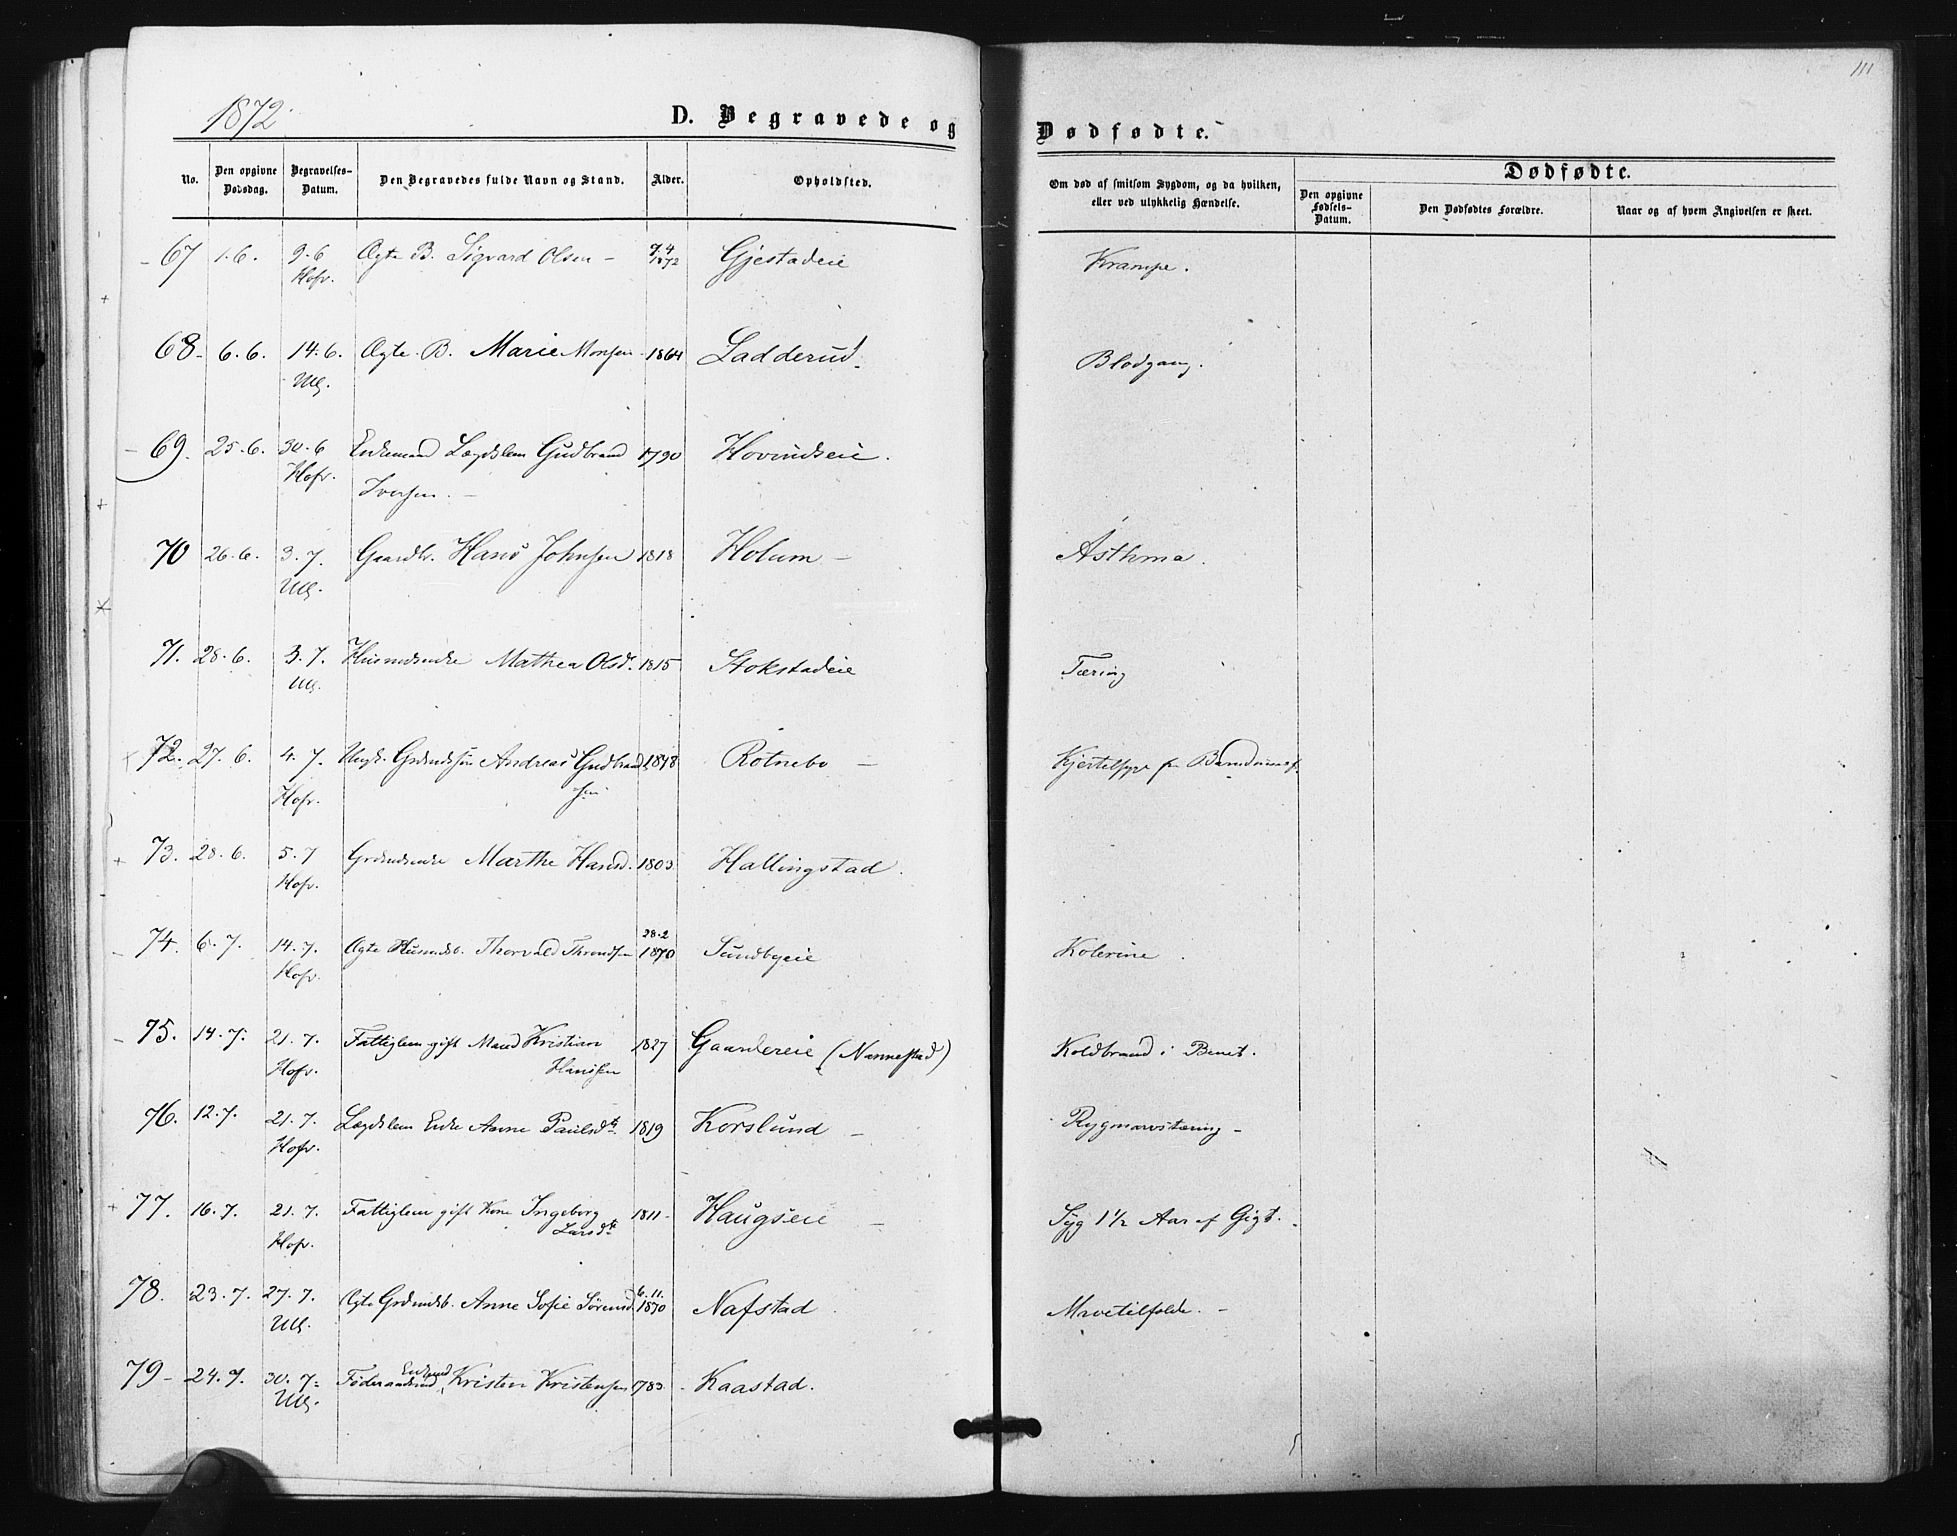 111
1872
D. Begravede og Dødfødte.
No. | Den opgivne Dødsdag. | Begravelses-Datum. | Den Begravedes fulde Navn og Stand. | Alder. | Opholdsted. | Om død af smitsom Sygdom, og da hvilken, eller ved ulykkelig Hændelse. | Dødfødte. | Den opgivne Fødsels-Datum. | Den Dødfødtes Forældre. | Naar og af hvem Angivelsen er skeet.
67 1.6. 9.6 Ægte B. Sigvard Olsen – 9.4 Gjestadeie Krampe.
Hofv. 1872
68 – 6.6. 14.6. Ægte B. Marie Monsen 1864 Ladderud. Blodgang.
Ull.
69. 25.6. 30.6 Enkemand Lægdslem Gudbrand 1790 Hovindseie.
Hofv. Iversen. –
70 26.6. 3.7. Gaardbr. Hans Johnsen 1818 Holum – Asthma.
Ull.
71. 28.6. 3.7. Husmdsenke Mathea Olsd. 1815 Stokstadeie Tæring
Ull.
72. 27.6. 4.7. Ungk. Grdmdssøn Andreas Gudbrand 1848 Rotnebo – Kjertelsyge fra Barndommen
Hofv. sen
73. 28.6. 5.7 Grdmdsenke Marthe Hansd. 1803 Hallingstad.
Hofv.
28.2
74. 6.7. 14.7. Ægte Husmdsb. Thorvald Throndsen 1870 Sundbyeie Kolerine.
Hofv.
75. 14.7. 21.7. Fattiglem gift Mand Kristian 1827 Gaardereie (Nannestad) Koldbrand i Benet.
Hofv. Hansen
76. 12.7. 21.7. Lægdslem Enke Anne Paulsdt. 1819 Korslund – Rygmarvstæring –
Hofv.
77. 16.7. 21.7. Fattiglem gift Kone Ingeborg 1811 – Haugseie – Syg 1 1/2 Aar af Gigt.
Hofv. Larsdt.
6.11.
78. 23.7. 27.7. Ægte Grdmdsb. Anne Sofie Sørensd. 1870 Nafstad Mavetilfælde. –
Ull.
Enkemd
79 – 24.7. 30.7. Føderaadsmd Kristen Kristensen 1783 Kaastad.
Ull.